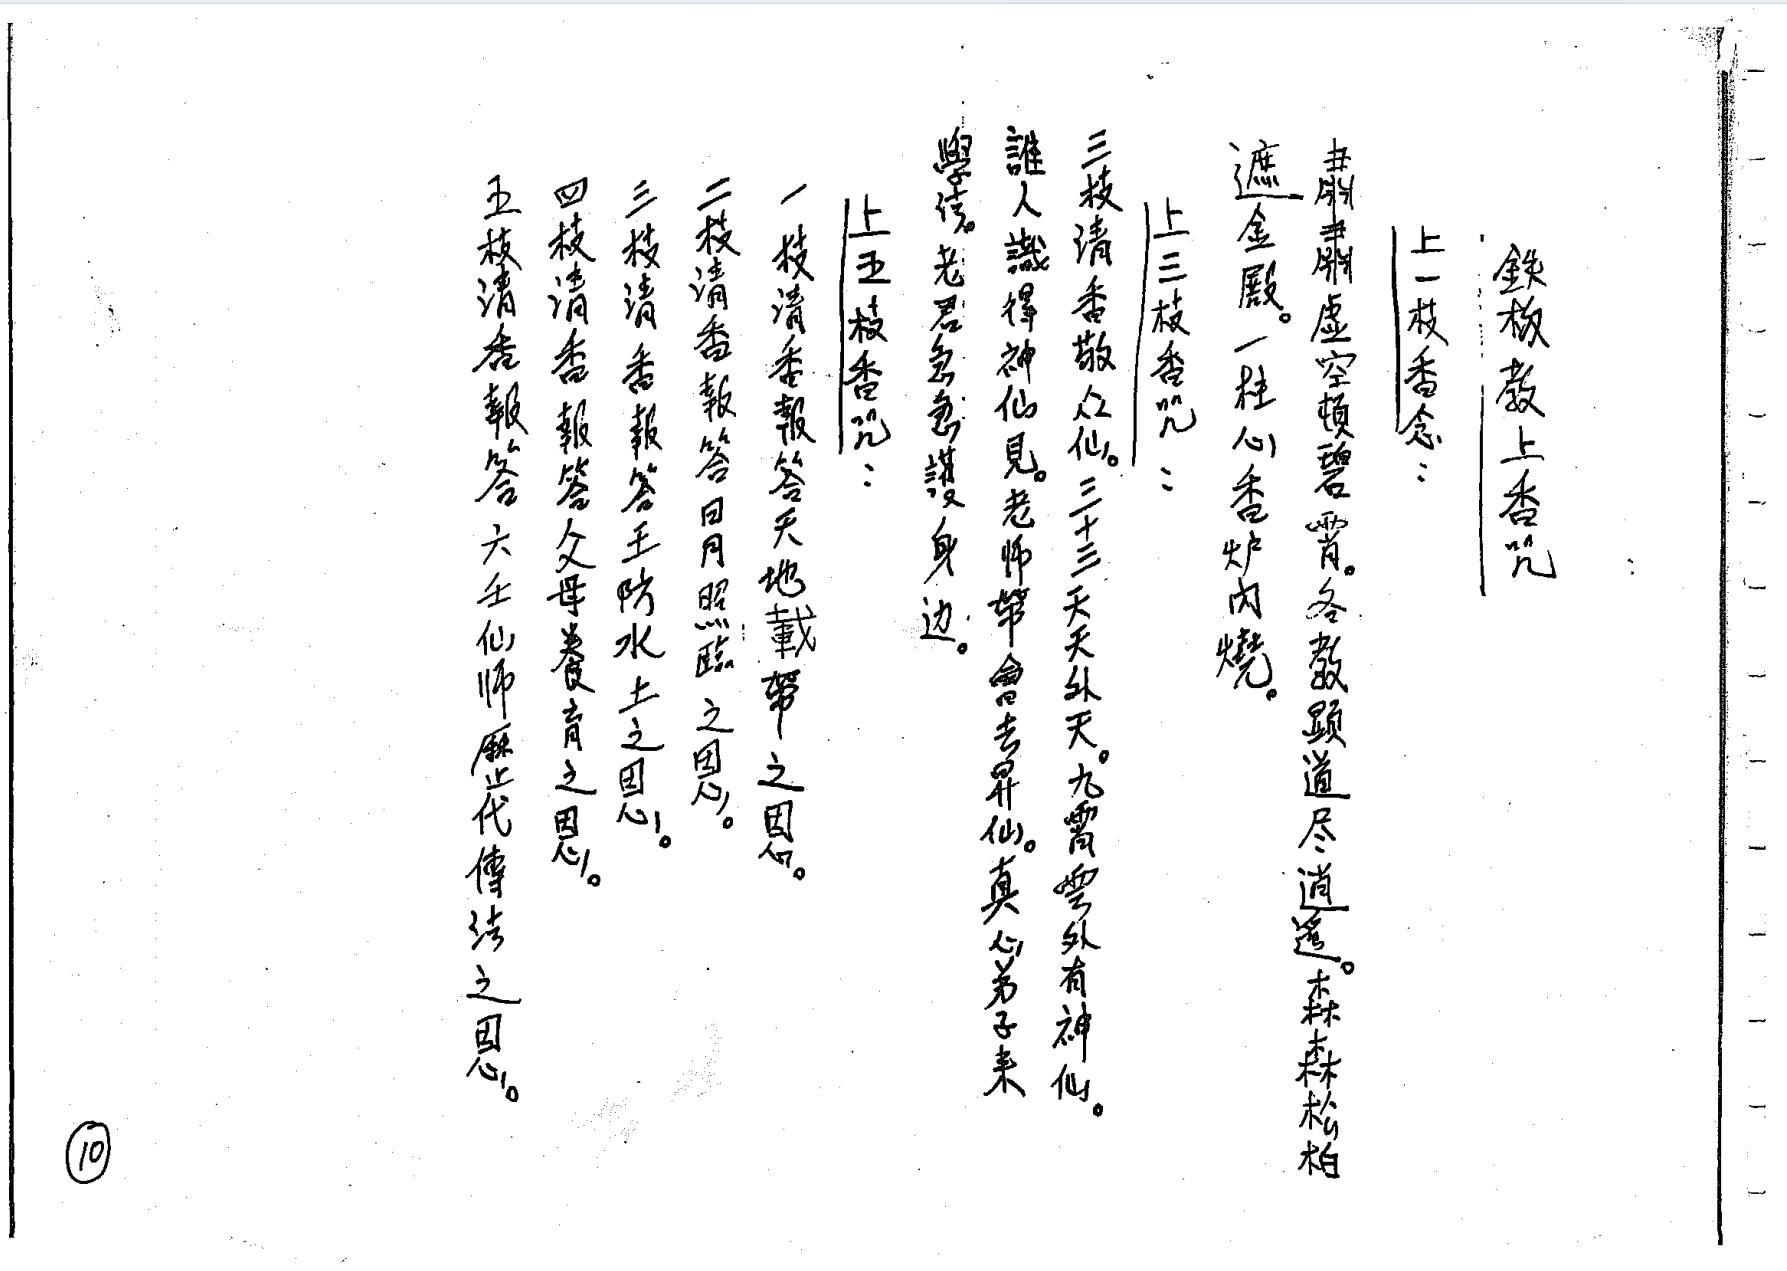 鉄板教上香咒
上一枝香念：
肅肅虛空頓碧霄。各教顕道尽逍遙。森森松柏
遮金殿。一柱心香炉内燒。
上三枝香咒：
三枝清香敬众仙。三十三天天外天。九霄雲外有神仙。
誰人識得神仙見。老师帶會去昇仙。真心弟子来
學法。老君急急護身边。
上五枝香咒：
一枝清香報答天地載帶之恩。
二枝清香報答日月照臨之恩。
三枝清香報答王防水土之恩。
四枝清香報答父母養育之恩。
五枝清香報答六壬仙师歷代傳法之恩。
10